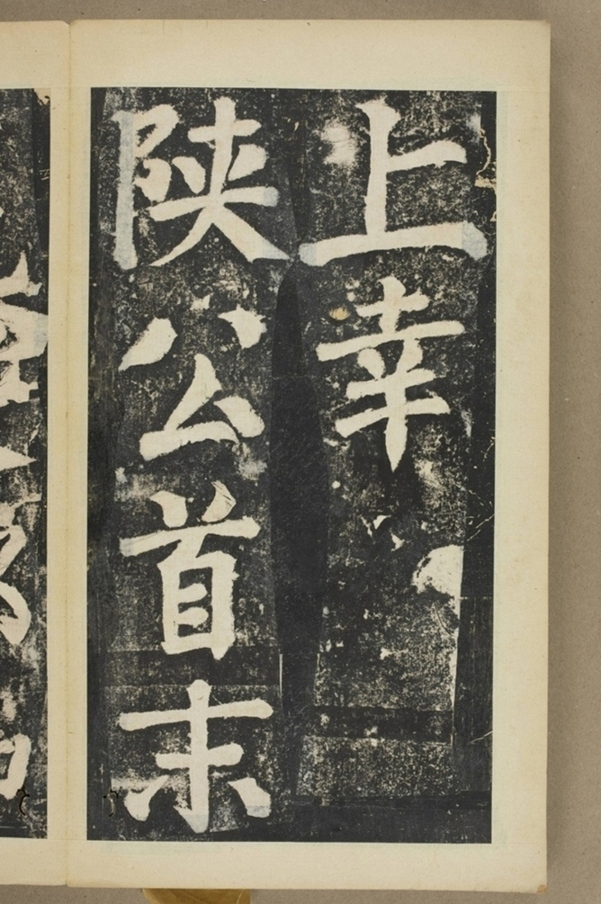 上幸
陕公首末